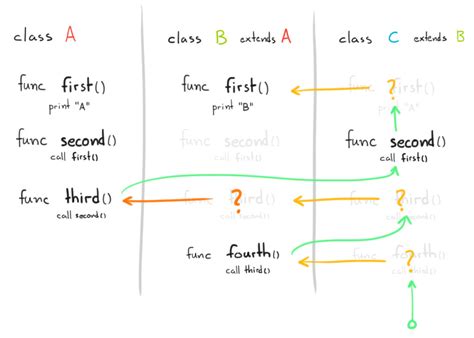 class A
func first()
print "A"
func second()
call first()
func third()
call second()
class B extends A
func first()
print "B"
func second()
call first()
?
func third()
call second()
func fourth()
call third()
class C extends B
?
func first()
func second()
call first()
?
func third()
call second()
?
func fourth()
call third()